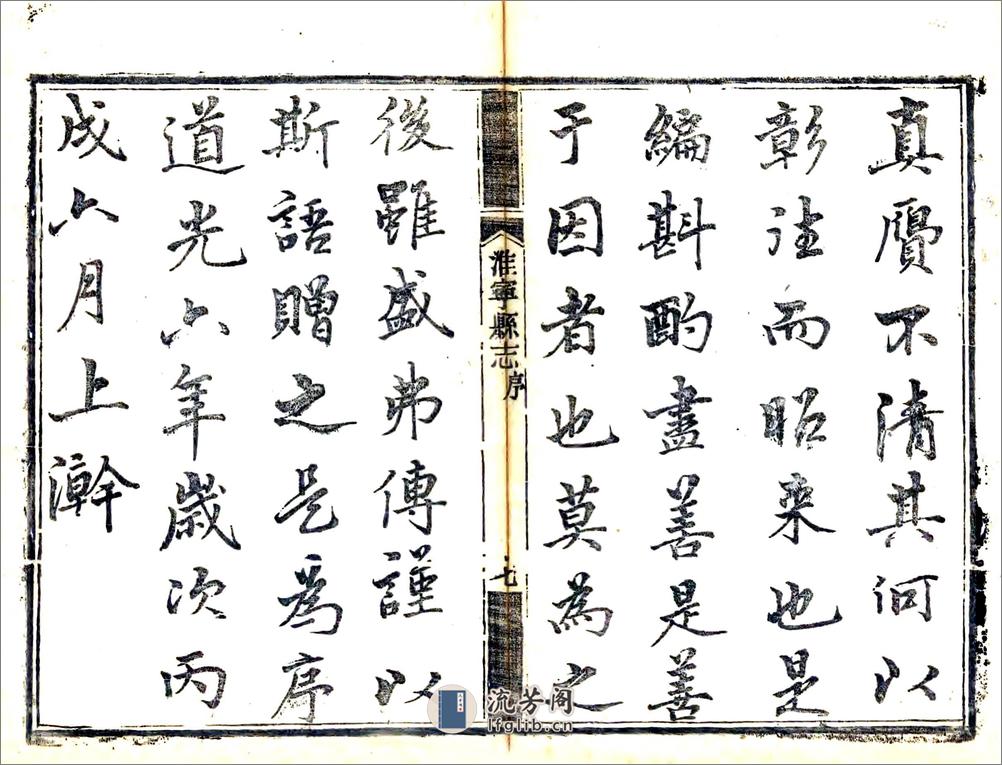 真贋不清其何以
彰往而昭来也是
編斟酌盡善是善
于因者也莫為之
淮寧縣志 序 七
後雖盛弗傳謹以
斯語贈之是為序
道光六年歲次丙
戌六月上澣
流芳阁
lfglib.cn